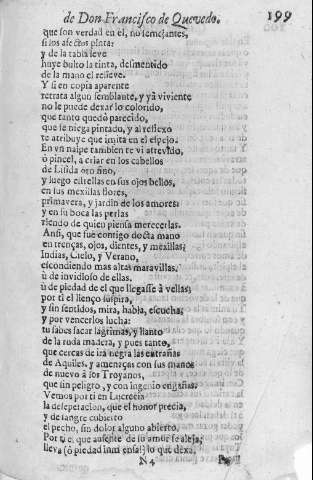 de Don Francisco de Quevedo. 199
que son verdad en el, no semejantes,
si los afectos pinta:
y de la tabla leve
huye bulto la tinta, desmentido
de la mano el relieve.
Y si en copia aparente
retrata algun semblante, y yà viviente
no le puede dexar lo colorido,
que tanto quedò parecido,
que se niega pintado, y al reflexo
te atribuye que imita en el espejo.
En vn naipe tambien te vi atrevido,
ò pincel, a criar en los cabellos
de Lisida oro fino,
y luego estrellas en sus ojos bellos,
en sus mexillas flores,
primavera, y jardin de los amores:
y en su boca las perlas
riendo de quien piensa merecerlas.
Ansi, que fue contigo docta mano
en trenças, ojos, dientes, y mexillas;
Indias, Cielo, y Verano,
escondiendo mas altas maravillas,
ù de invidioso de ellas,
ù de piedad de el que llegasse à vellas;
por ti el lienço suspira,
y sin sentidos, mira, habla, escucha;
y por vencerlos lucha:
tu sabes sacar lagrimas, y llanto
de la ruda madera, y pues tanto,
que cercas de ira negra las entrañas
de Aquiles, y amenaças con sus manos
de nuevo à los Troyanos,
que sin peligro, y con ingenio engañas.
Vemos por ti en Lucrecia
la desesperacion, que el honor precia,
y de sangre cubierto
el pecho, sin dolor alguno abierto.
Por ti el que ausente de su amor se aleja;
lleva (ò piedad inmensa!) lo que dexa.
N 4